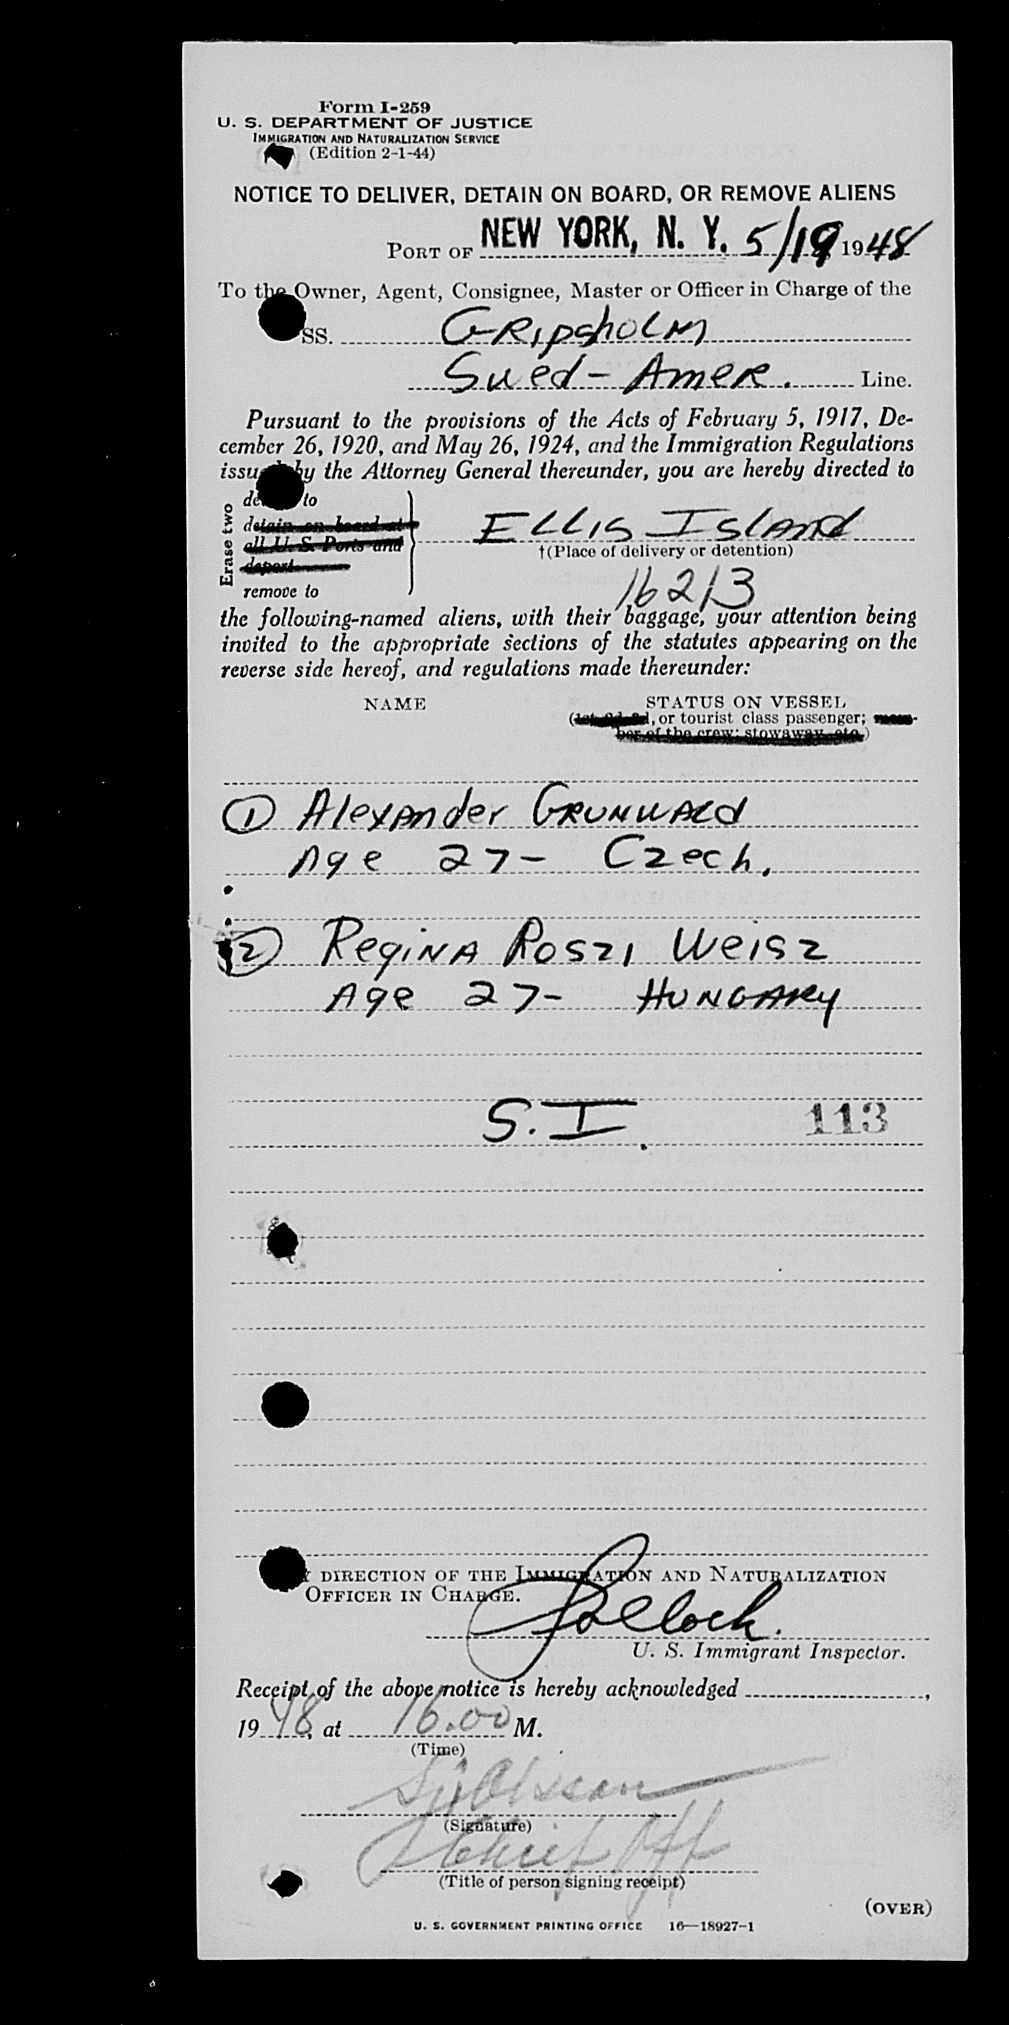 Form I-259
U. S. DEPARTMENT OF JUSTICE
IMMIGRATION AND NATURALIZATION SERVICE
(Edition 2-1-44)
NOTICE TO DELIVER, DETAIN ON BOARD, OR REMOVE ALIENS
PORT OF NEW YORK, N. Y. 5/19 1948
To the Owner, Agent, Consignee, Master or Officer in Charge of the
SS. Gripsholm
Swed-Amer. Line.
Pursuant to the provisions of the Acts of February 5, 1917, De-
cember 26, 1920, and May 26, 1924, and the Immigration Regulations
issued by the Attorney General thereunder, you are hereby directed to
Erase two
to
detain on board at
all U. S. Ports and
deport
remove to
Ellis Island
†(Place of delivery or detention)
16213
the following-named aliens, with their baggage, your attention being
invited to the appropriate sections of the statutes appearing on the
reverse side hereof, and regulations made thereunder:
NAME STATUS ON VESSEL
(1st, 2d, 3d, or tourist class passenger; mem-
ber of the crew; stowaway, etc.)
1 Alexander Grunwald
Age 27- Czech.
2 Regina Roszi Weisz
Age 27- Hungary
S. I.
113
DIRECTION OF THE IMMIGRATION AND NATURALIZATION
OFFICER IN CHARGE.
Pollock.
U. S. Immigrant Inspector.
Receipt of the above notice is hereby acknowledged ,
1948, at 16.00 M.
(Time)
(Signature)
Chief Off
(Title of person signing receipt)
(OVER)
U. S. GOVERNMENT PRINTING OFFICE 16—18927-1